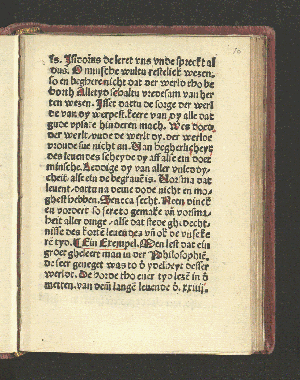 is. Isidorus de leret vns vnde spreckt al
dus. O minsche wultu restelick wezen.
so en beghere nicht dat der werld tho be
horth Alletyd schaltu vredesam van her
ten wezen. Isset dattu de sorge der werl
de van dy werpest. keere van dy alle dat
gude vpsate hinderen mach. Wes doed
der werlt. vnde de werlt dy. der werlde
vroude sue nicht an. Van begherlicheyt
des leuendes scheyde dy aff alse ein doet
minsche. Ledige dy van aller vuledy-
cheit alse ein de begrauen is. Vorsma dat
leuent. dattu na deme dode nicht en mo-
ghest hebben. Seneca secht. Neen dinck
en vordert so sere to gemake vnd vorsma-
heit aller dinge. alse dat stede ghedecht-
nisse des korte leuendes vnd ok de vnseke
re tyd. Ein Exempel. Men lest dat ein
groet gheleert man in der Philosophien.
de seer geneget was to der ydelheyt desser
werlde. De horde tho ener tyd lezen in d
metten. van dem lange leuende d. xxiiij.